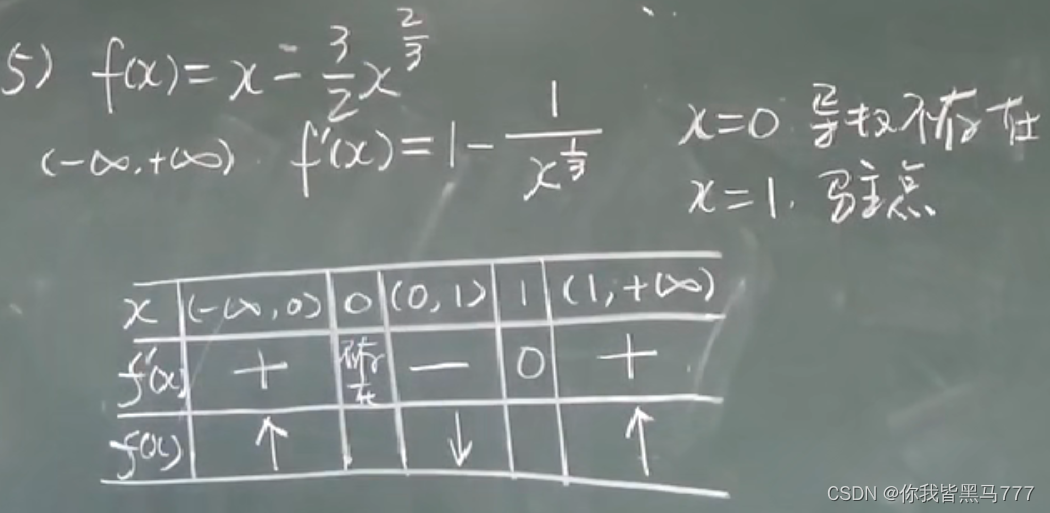 5) f(x)=x-\frac{3}{2}x^{\frac{2}{3}}
(-∞,+∞) f'(x)=1-\frac{1}{x^{\frac{1}{3}}}
x=0 导数不存在
x=1. 驻点
x (-∞,0) 0 (0,1) 1 (1,+∞)
f'(x) + 不存在 — 0 +
f(x) ↑ ↓ ↑
CSDN @你我皆黑马777